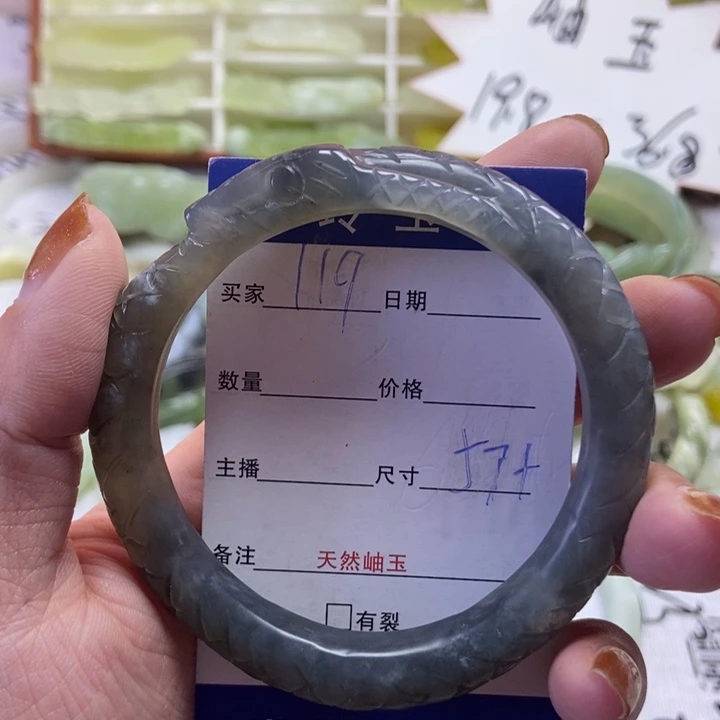 岫玉
19.8
买家 119 日期
数量 价格
主播 尺寸 57+
备注 天然岫玉
□有裂